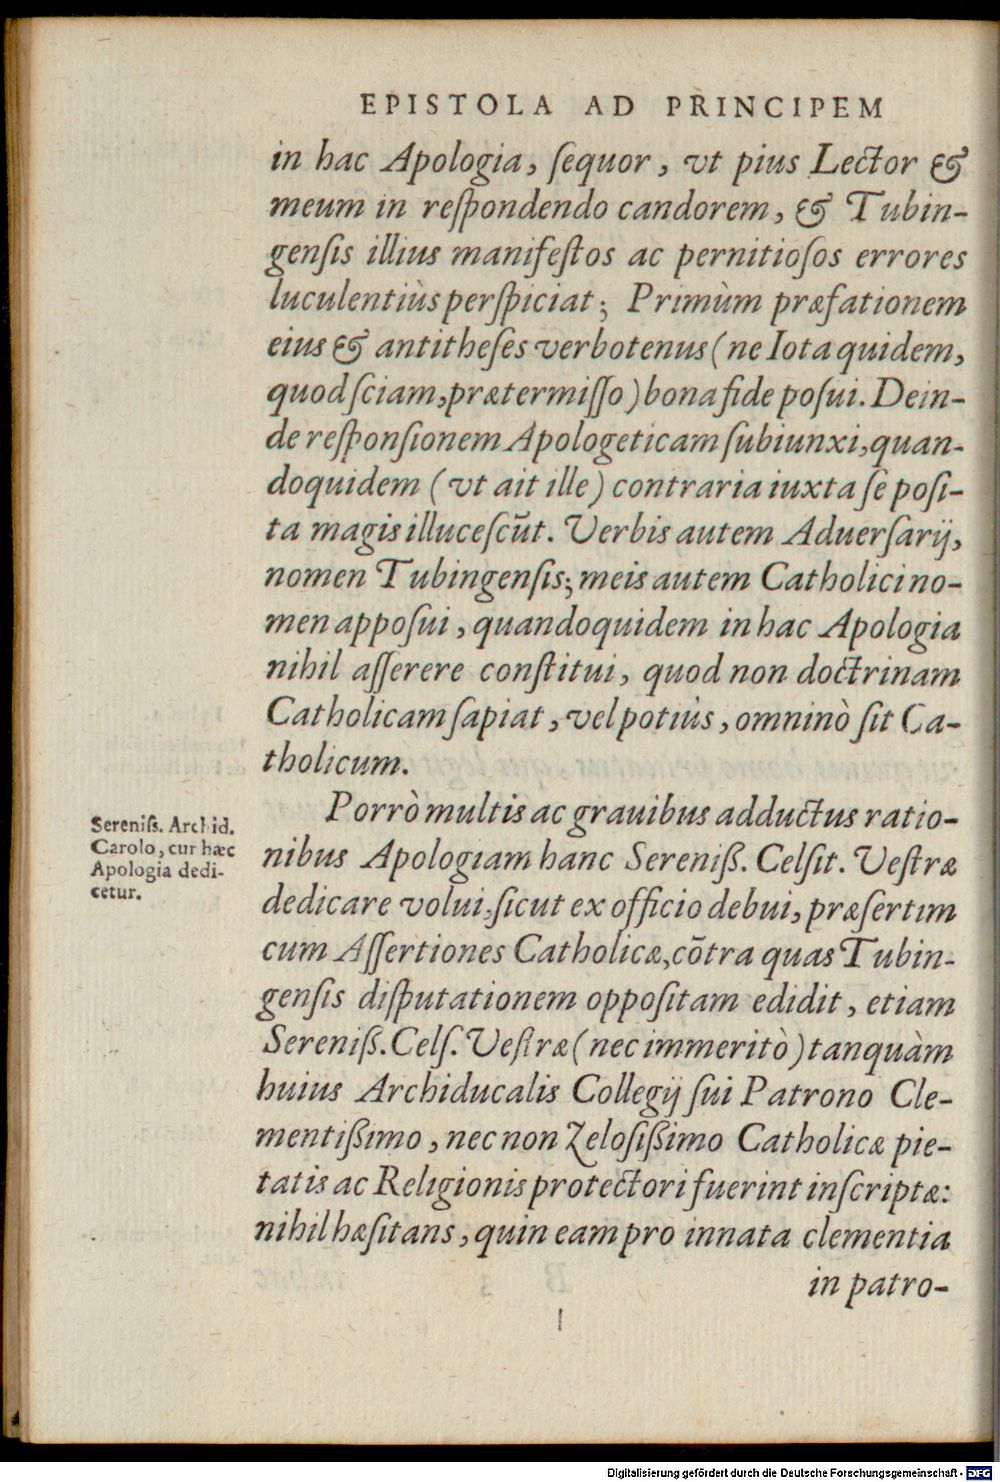 EPISTOLA AD PRINCIPEM
in hac Apologia, ſequor, vt pius Lector &
meum in reſpondendo candorem, & Tubin-
genſis illius manifeſtos ac pernitioſos errores
luculentiùs perſpiciat; Primùm præfationem
eius & antitheſes verbotenus (ne Iota quidem,
quod ſciam, prætermiſſo) bona fide poſui. Dein-
de reſponſionem Apologeticam ſubiunxi, quan-
doquidem (vt ait ille) contraria iuxta ſe poſi-
ta magis illuceſcũt. Verbis autem Aduerſarij,
nomen Tubingenſis; meis autem Catholici no-
men appoſui, quandoquidem in hac Apologia
nihil aſſerere conſtitui, quod non doctrinam
Catholicam ſapiat, vel potiùs, omninò ſit Ca-
tholicum.
Porrò multis ac grauibus adductus ratio-
nibus Apologiam hanc Sereniß. Celſit. Veſtræ
dedicare volui, ſicut ex officio debui, præſertim
cum Aſſertiones Catholicæ, cõtra quas Tubin-
genſis diſputationem oppoſitam edidit, etiam
Sereniß. Celſ. Veſtræ (nec immeritò) tanquàm
huius Archiducalis Collegij ſui Patrono Cle-
mentißimo, nec non Zeloſißimo Catholicæ pie-
tatis ac Religionis protectori fuerint inſcriptæ:
nihil hæſitans, quin eam pro innata clementia
in patro-
Sereniſs. Archid.
Carolo, cur hæc
Apologia dedi-
cetur.
Digitalisierung gefördert durch die Deutsche Forschungsgemeinschaft - DFG